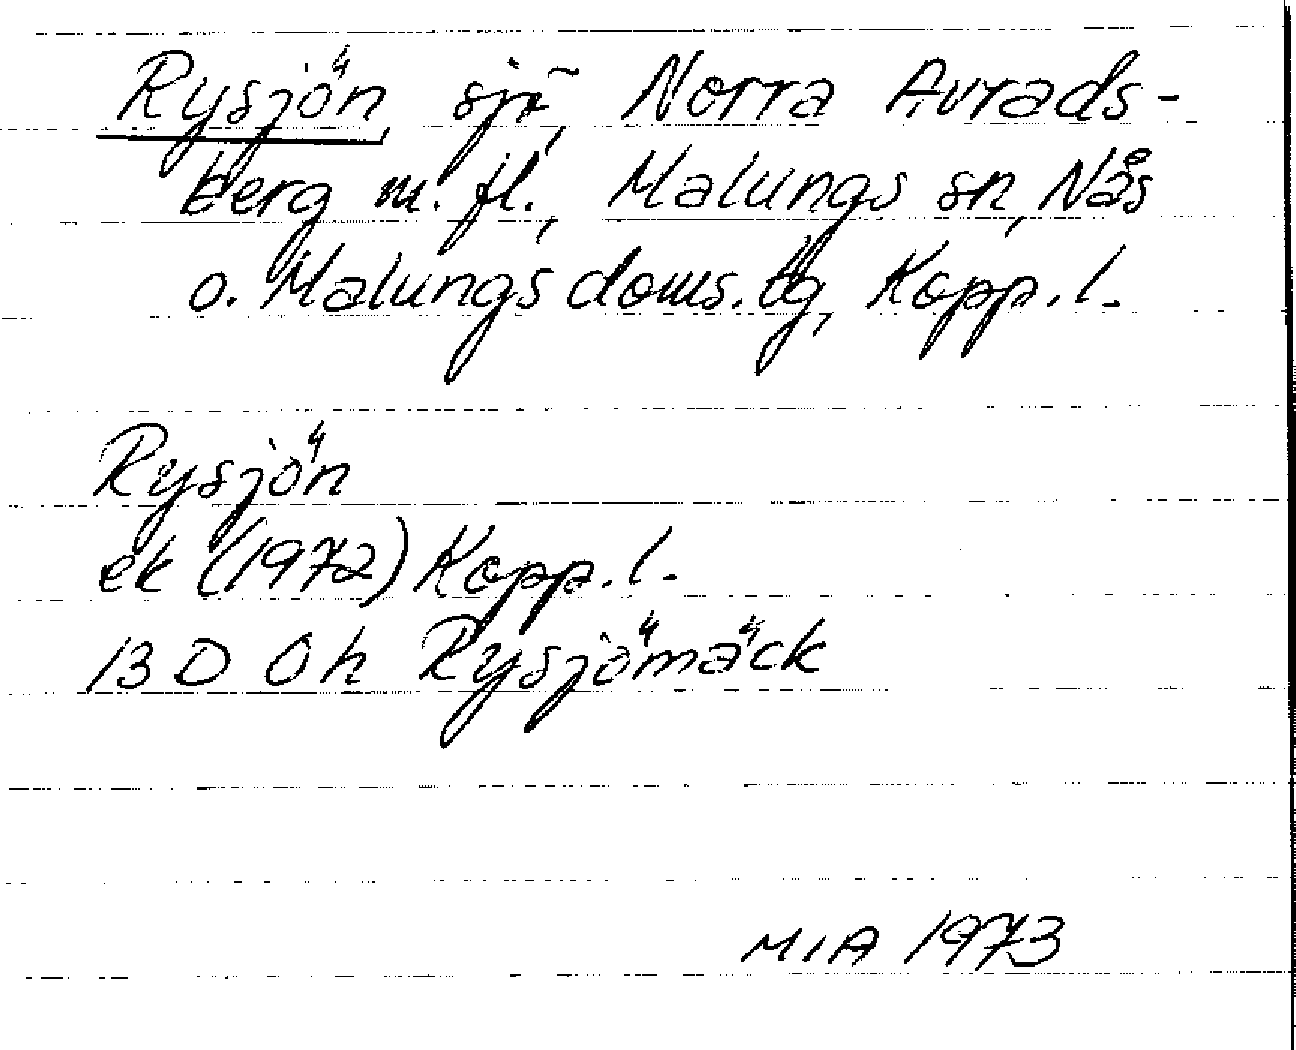 Rysjön, sjö, Norra Avrads-
berg m. fl., Malungs sn, Nås
o. Malungs doms.tg, Kopp. l.
Rysjön
ek (1972) Kopp. l.
13 D 0h Rysjömäck
MIA 1973